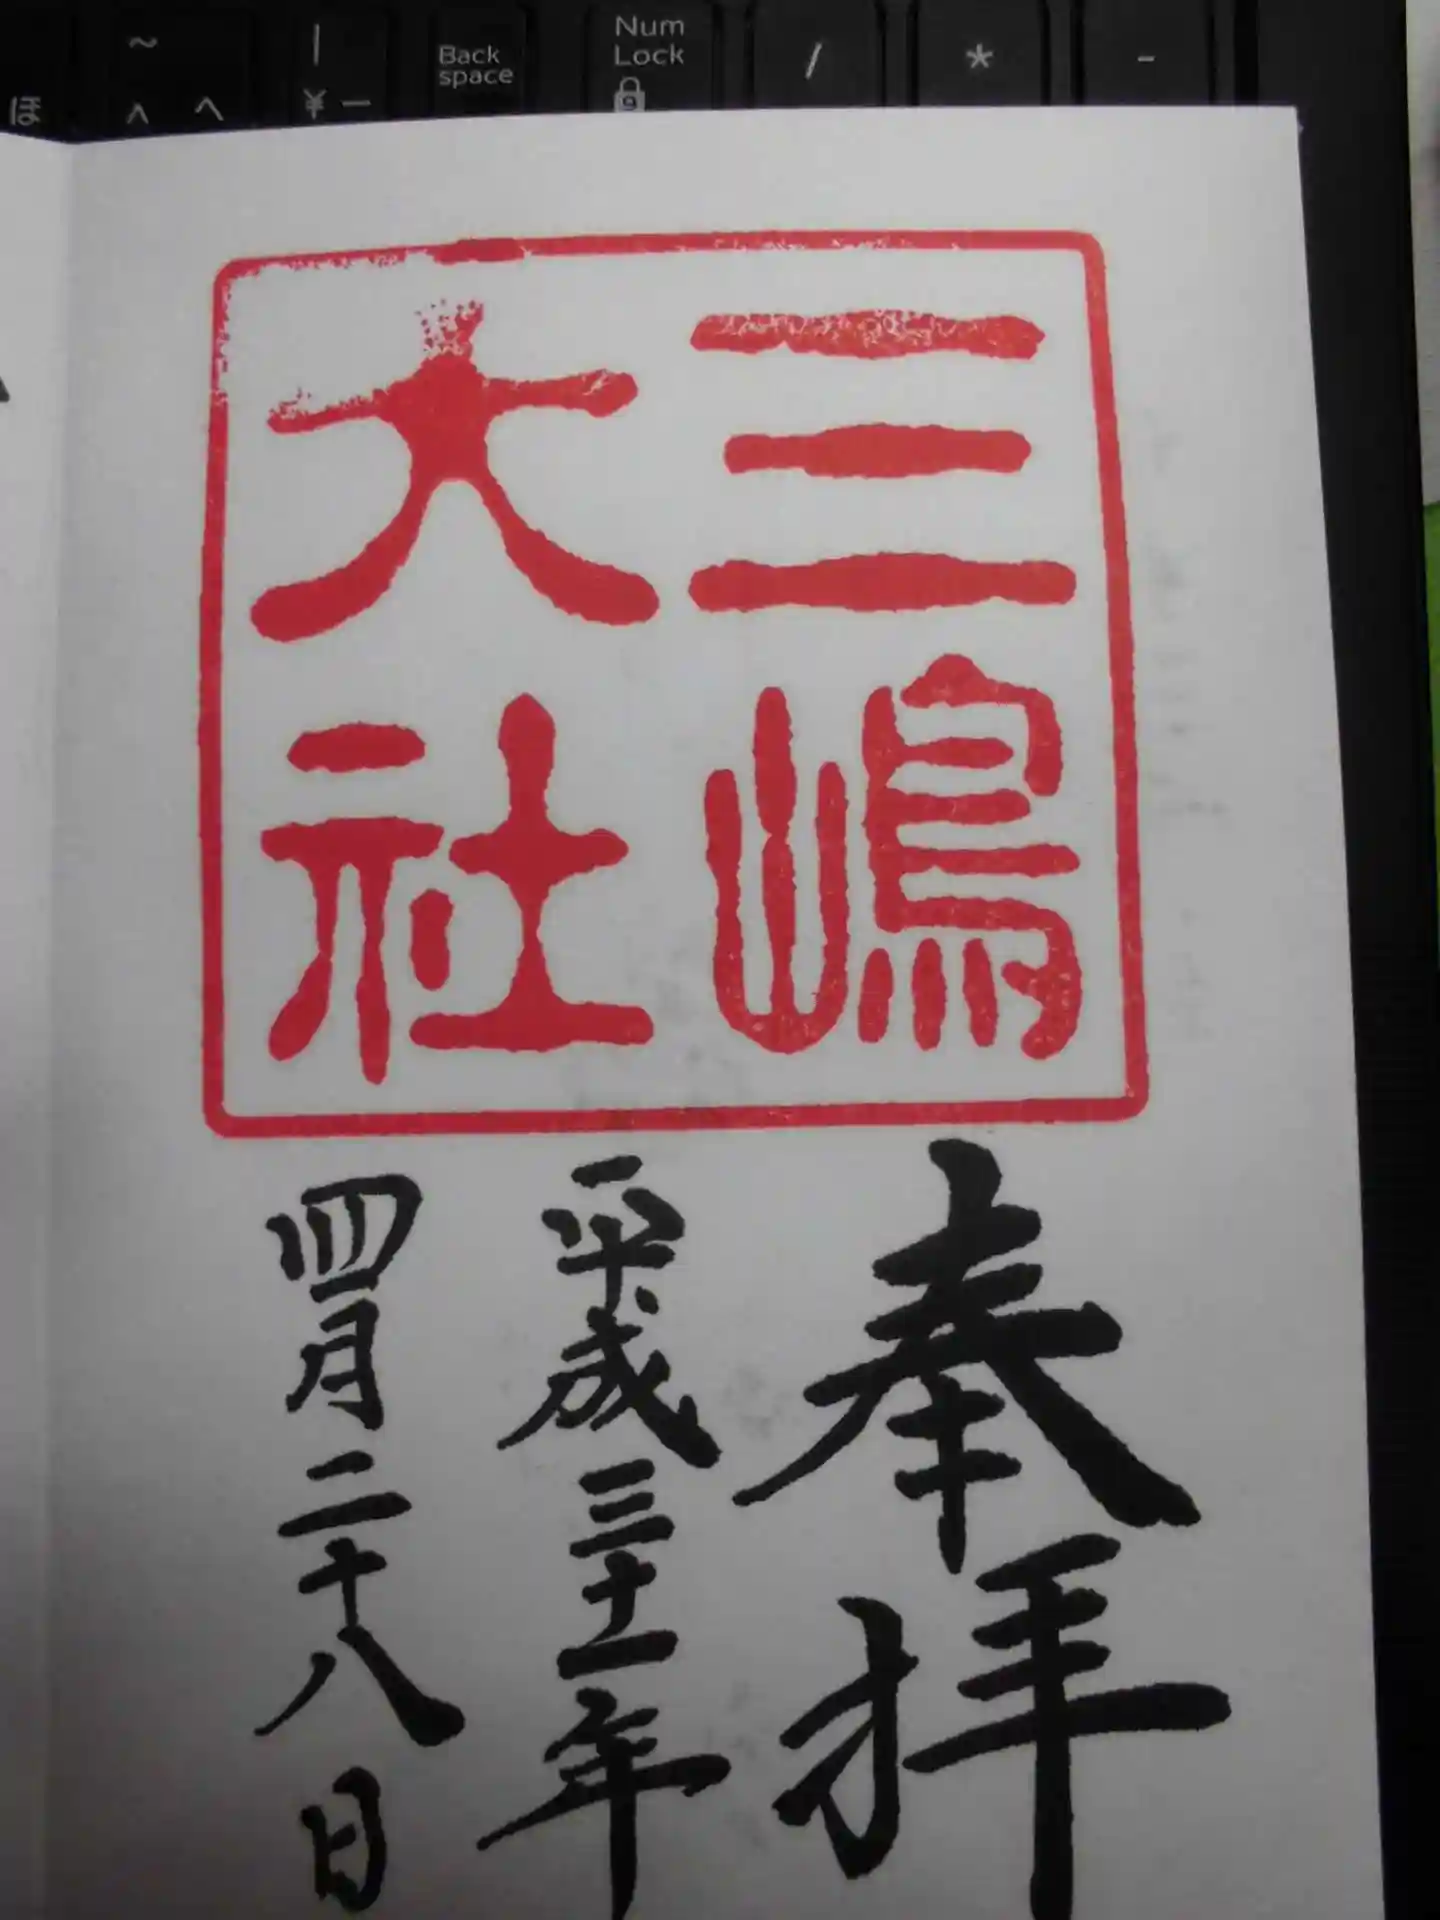 ~
|
Back
space
Num
Lock
/
*
-
ほ
^ へ
¥ ー
三嶋
大社
奉拝
平成三十一年
四月二十八日